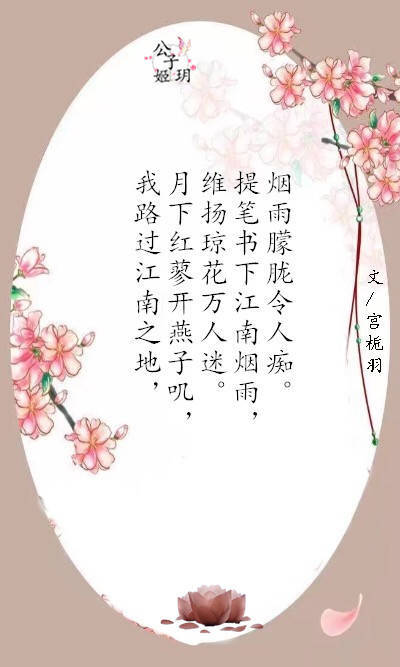 公子
姬玥
我路过江南之地，
月下红蓼开燕子叽，
维扬琼花万人迷。
提笔书下江南烟雨，
烟雨朦胧令人痴。
文/宫栀羽